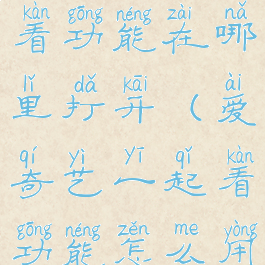 kàn gōng néng zài nǎ
看功能在哪
lǐ dǎ kāi ài
里打开（爱
qí yì yī qǐ kàn
奇艺一起看
gōng néng zěn me yòng
功能怎么用